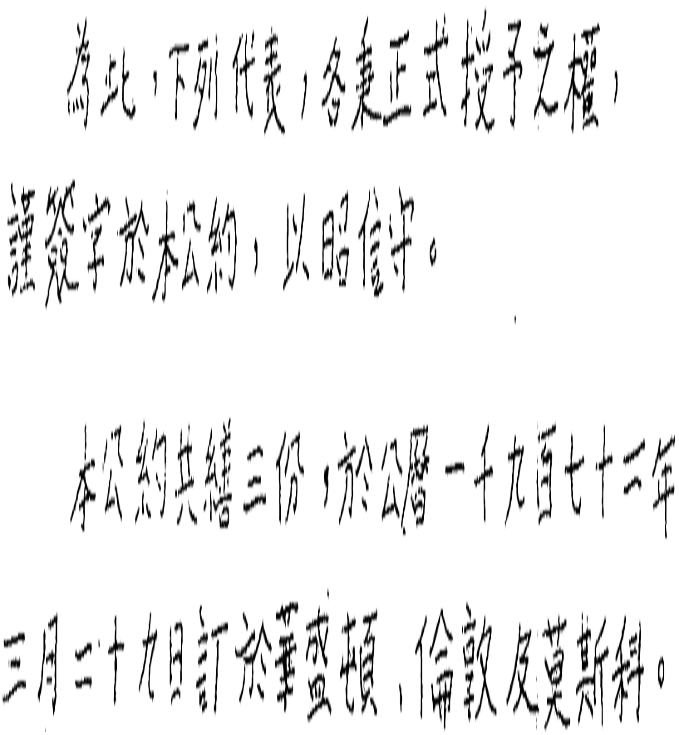 為此,下列代表,各秉正式授予之權,
謹簽字於本公約,以昭信守。
本公約共繕三份,於公曆一千九百七十二年
三月二十九日訂於華盛頓、倫敦及莫斯科。